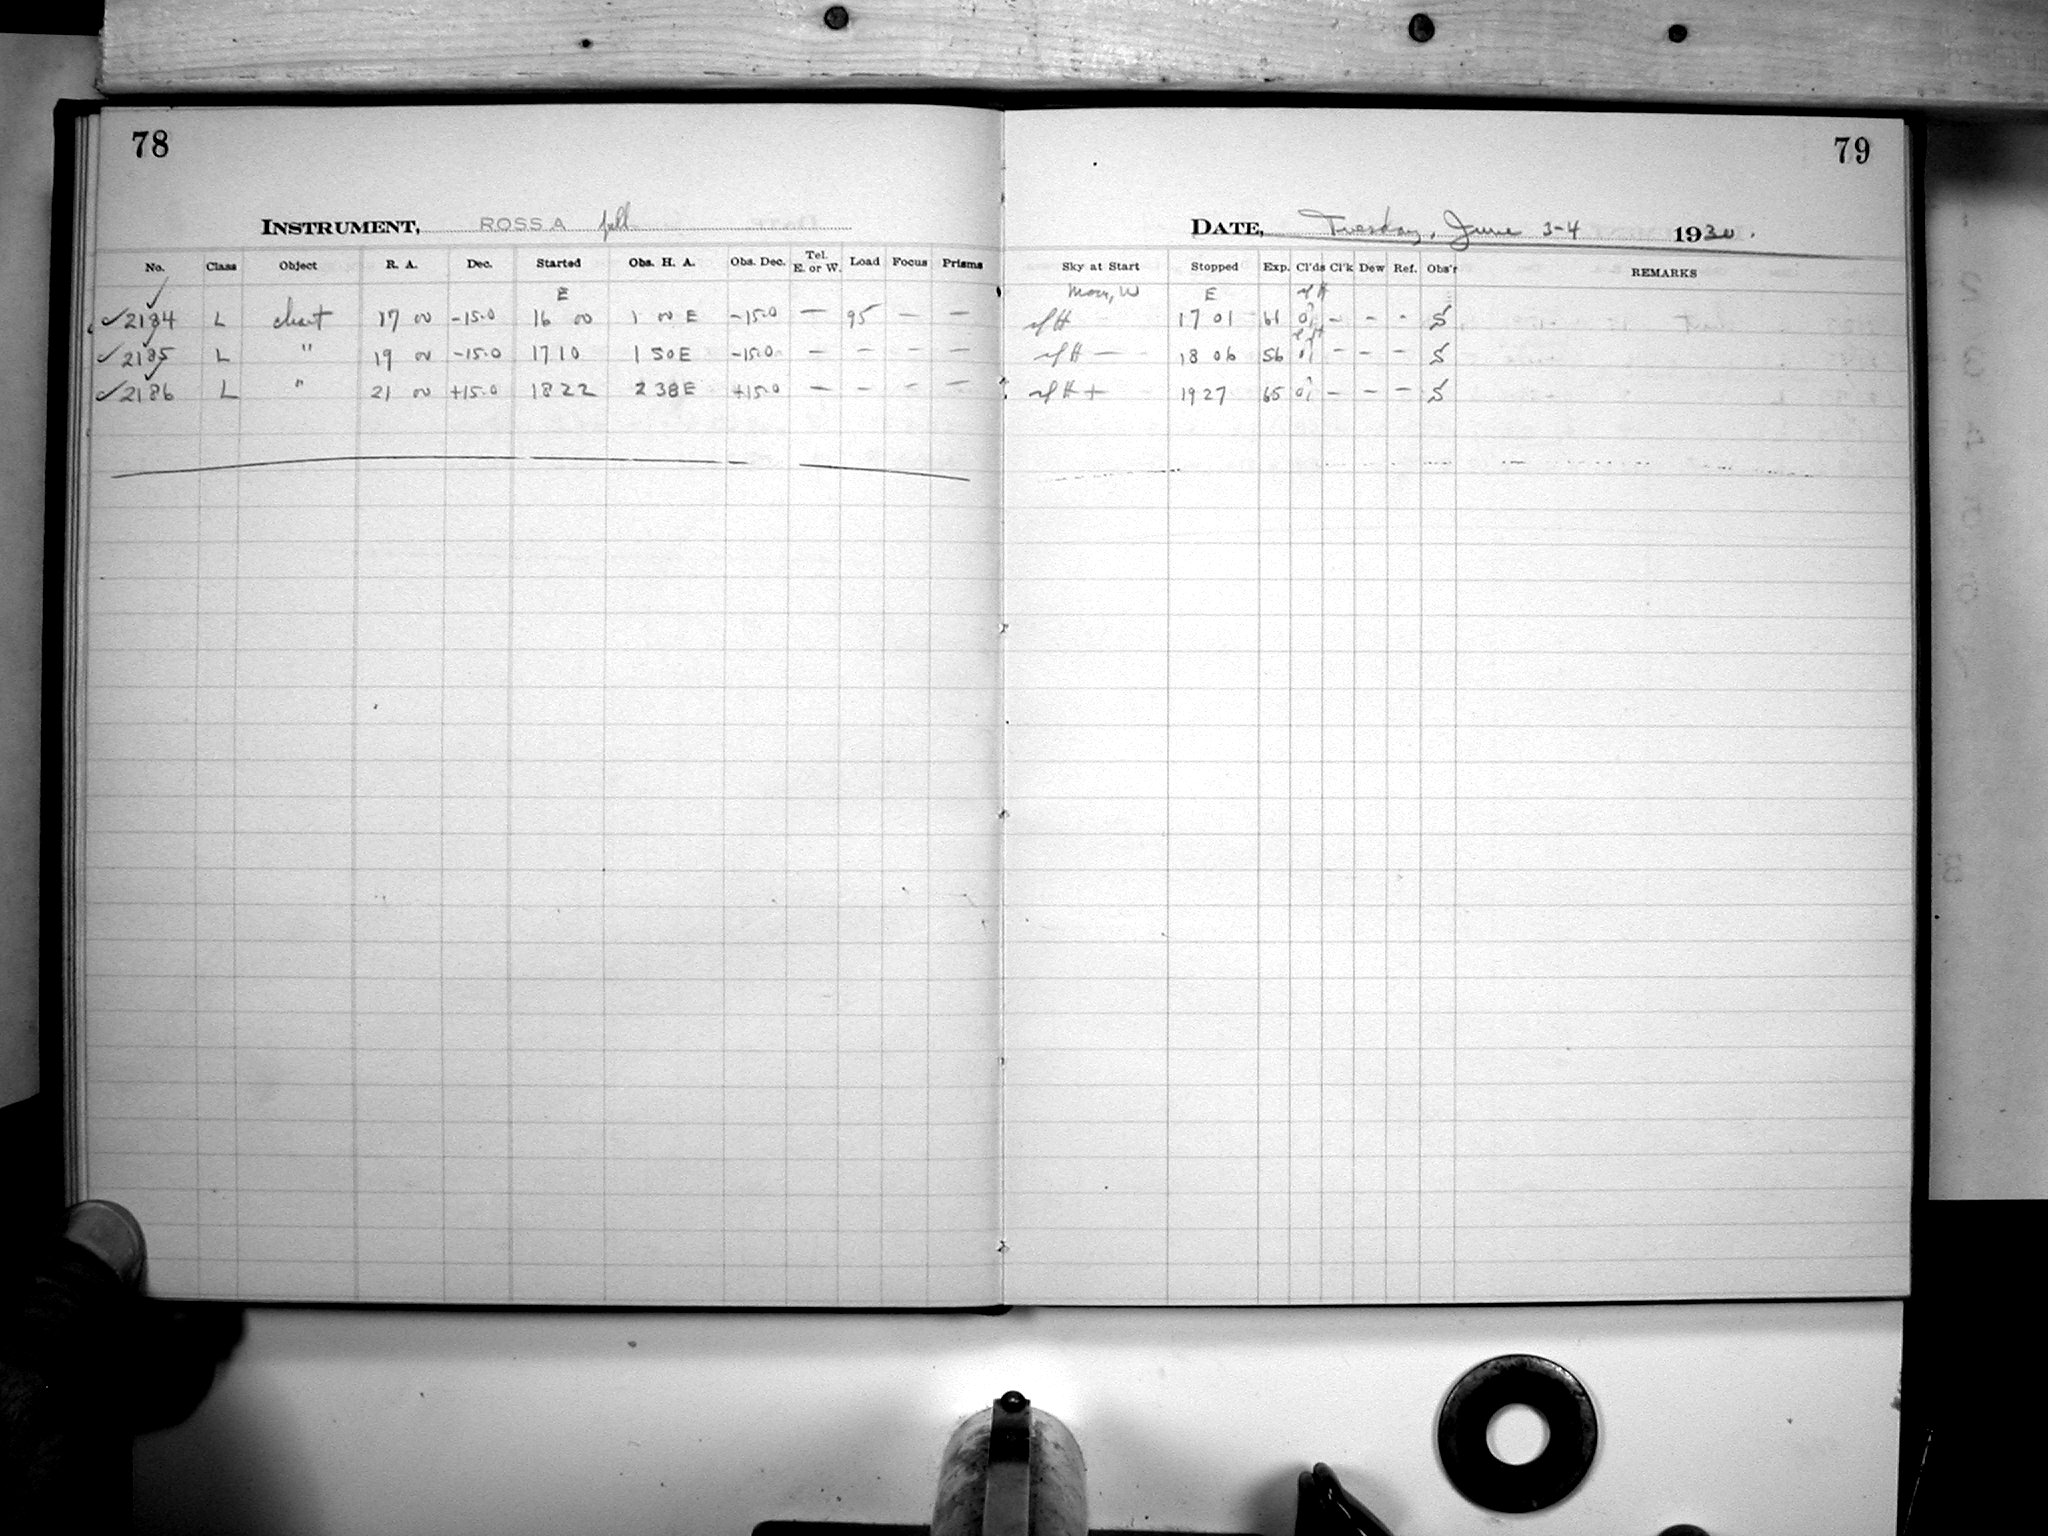 78
INSTRUMENT, ROSS A full
No. Class Object R. A. Dec. Started Obs. H. A. Obs. Dec. Tel. E. or W. Load Focus Prisms
E
✓2184 L chart 17 00 -15.0 16 00 1 00 E -15.0 — 95 — —
✓2185 L " 19 00 -15.0 17 10 1 50 E -15.0 — — — —
✓2186 L " 21 00 +15.0 18 22 2 38 E +15.0 — — — —
79
DATE, Tuesday, June 3-4 1930.
Sky at Start Stopped Exp. Cl'ds Cl'k Dew Ref. Obs'r REMARKS
Moon, W E
H 17 01 61 — — - S
H — 18 06 56 — — — S
H + 19 27 65 — — — S